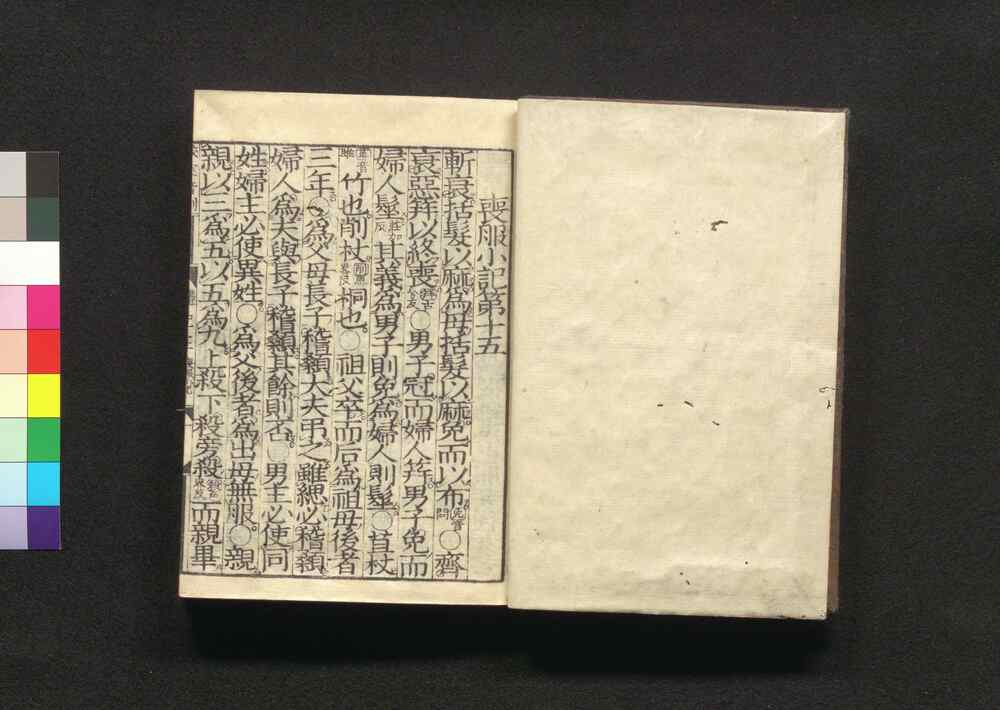 喪服小記第十五
斬衰括髮以麻爲母括髮以麻免而以布免音問○齊
衰惡筓以終喪○男子冠而婦人筓男子免而
婦人髽其義爲男子則免爲婦人則髽○苴杖
竹也削杖桐也○祖父卒而后爲祖母後者
三年○爲父母長子稽顙大夫弔之雖緦必稽顙
婦人爲夫與長子稽顙其餘則否○男主必使同
姓婦主必使異姓○爲父後者爲出母無服○親
親以三爲五以五爲九上殺下殺旁殺而親畢